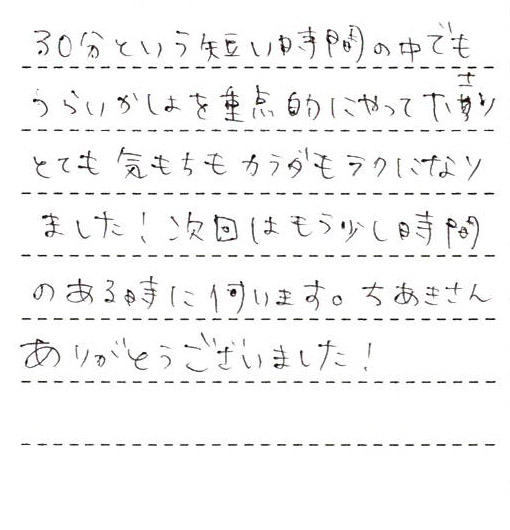 30分という短い時間の中でも
つらいかしょを重点的にやって下さり
とても気もちもカラダもラクになり
ました！次回はもう少し時間
のある時に伺います。ちあきさん
ありがとうございました！